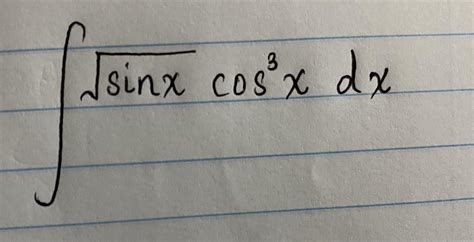 ∫√sinx cos³x dx